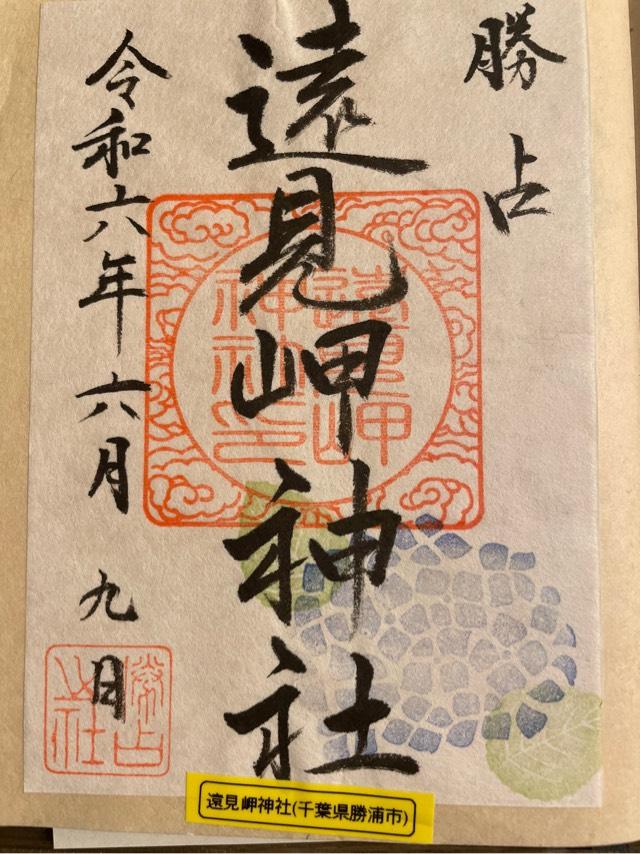 勝占
遠見岬神社
令和六年六月九日
遠見岬神社印
勝占之社
遠見岬神社(千葉県勝浦市)